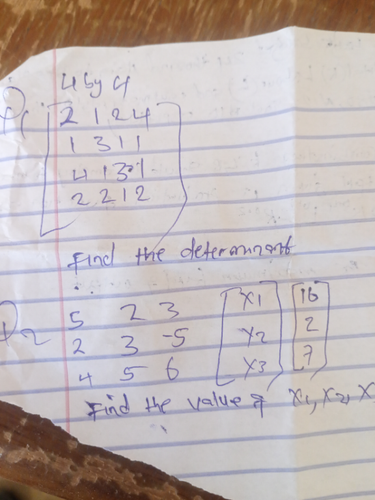 4 by 4
Q1 2 1 2 4
1 3 1 1
4 1 3 1
2 2 1 2
Find the determinant
Q2 5 2 3 x1 16
2 3 -5 x2 2
4 5 6 x3 7
Find the value of x1, x2, x